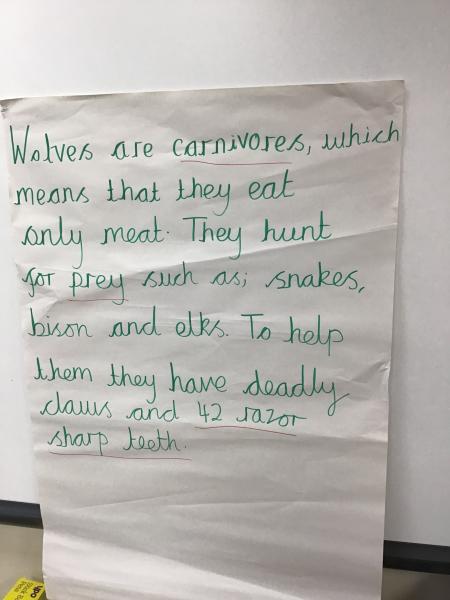 Wolves are carnivores, which
means that they eat
only meat. They hunt
for prey such as; snakes,
bison and elks. To help
them they have deadly
claws and 42 razor
sharp teeth.